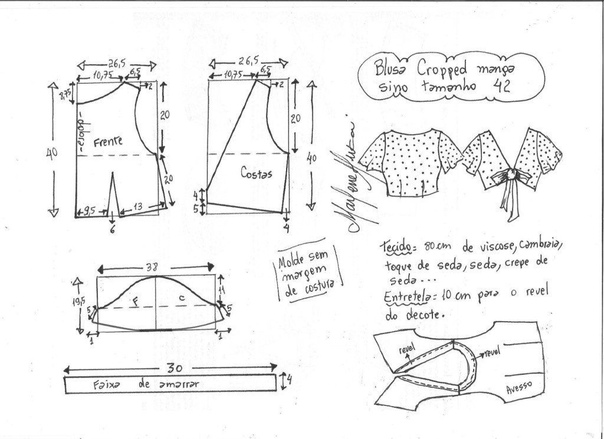 26,5
10,75 6,5
2,75
2
40
20
dobra
Frente
20
9,5 13
6
26,5
10,75 6,5
2
20
40
Costas
4
5
4
Blusa Cropped manga
sino tamanho 42
Marlene Mukai
Molde sem
margem
de costura
Tecido = 80 cm de viscose, cambraia,
toque de seda, seda, crepe de
seda...
Entretela = 10 cm para o revel
do decote.
38
19,5
F C
11
5 5
1 1
30
Faixa de amarrar
4
revel
revel
Avesso